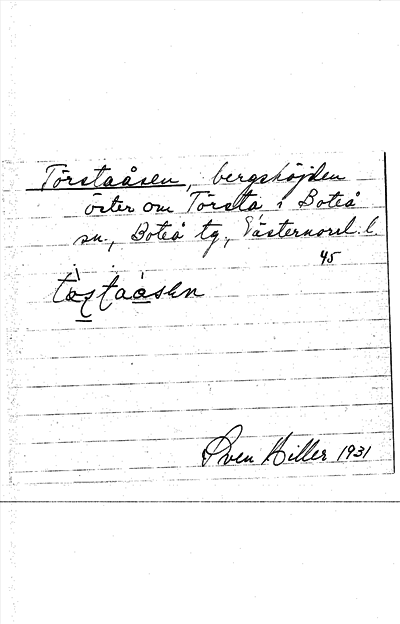 Törstaåsen, bergshöjden
öster om Törsta i Boteå
sn., Boteå tg, Västernorrl. l.
45
Sven Hiller 1931